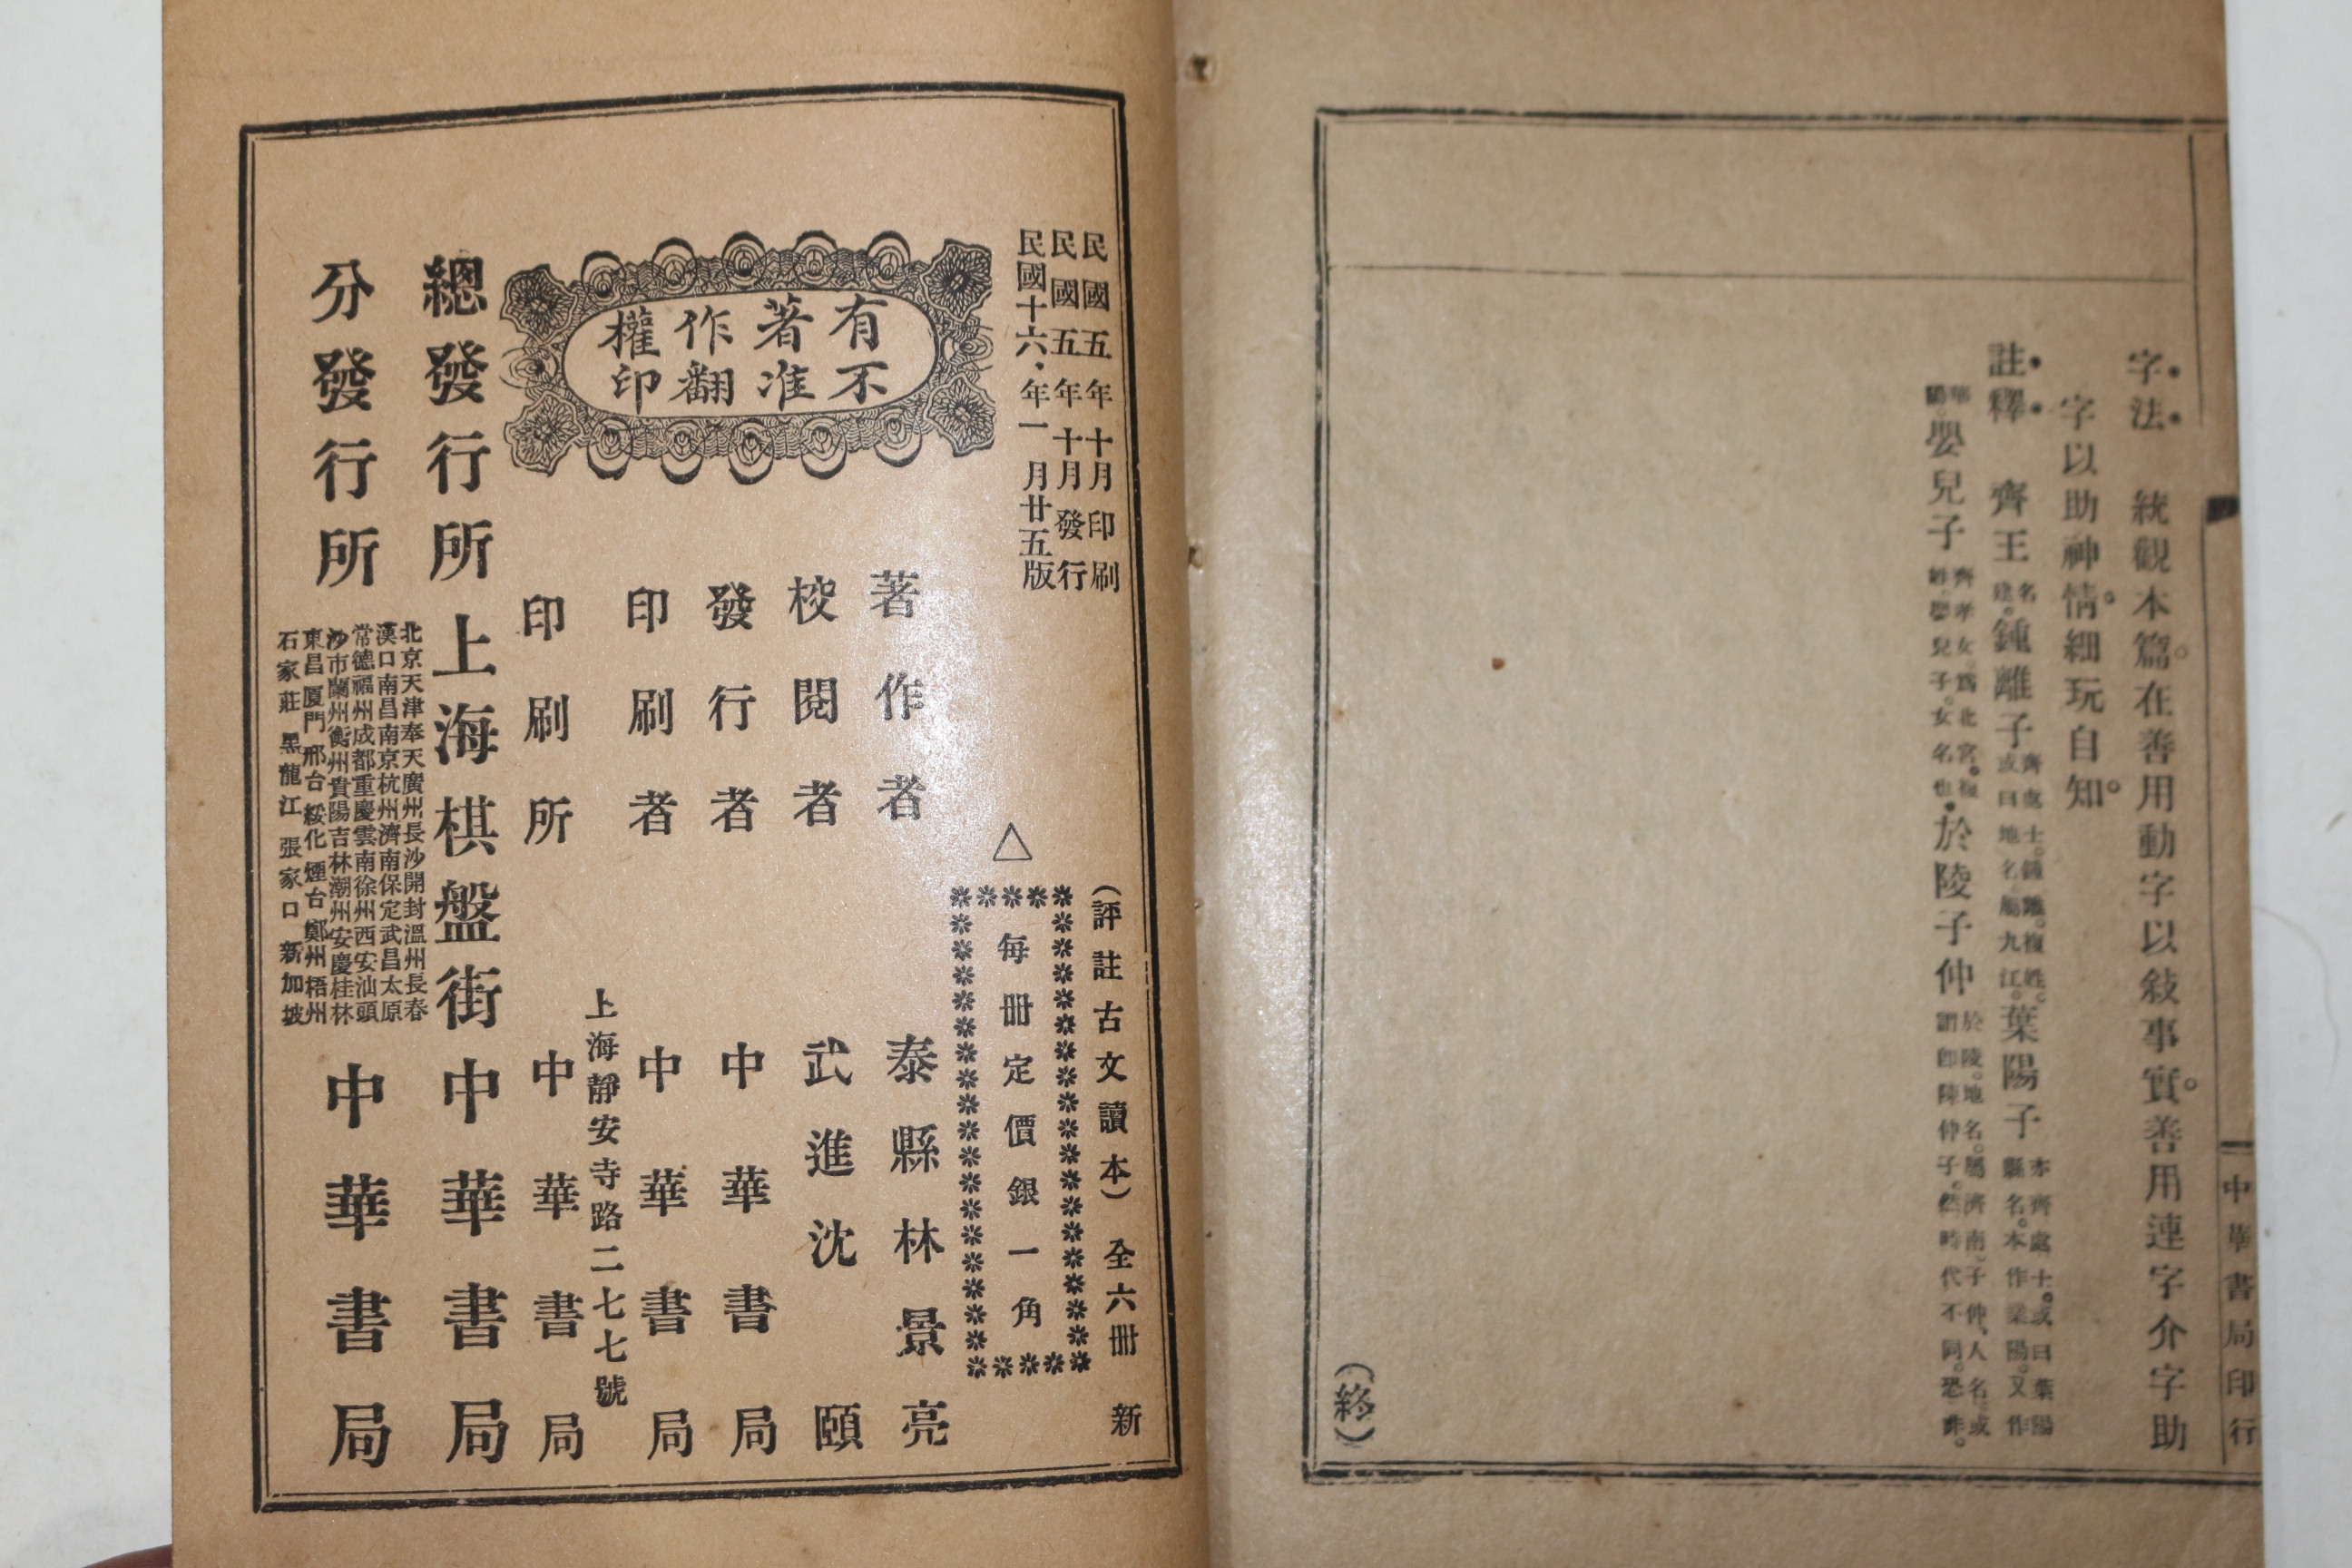 中華書局印行
字法 統觀本篇。在善用動字以敍事實。善用連字介字助
字以助神情。細玩自知。
註釋 齊王名建。鍾離子齊處士。鍾離。複姓。或曰地名。屬九江。葉陽子亦齊處士。或曰葉陽縣名。本作業陽。又作
華陽。嬰兒子齊孝女。爲北宮。複姓。嬰兒子。女名也。於陵子仲於陵。地名。屬濟南。子仲、人名。或謂卽陳仲子。然時代不同。恐非。
(終)
民國五年十月印刷
民國五年十月發行
民國十六年一月廿五版
有不
著准
作翻
權印
(評註古文讀本)全六册 新
△
每册定價銀一角
著作者 泰縣林景亮
校閱者 武進沈頤
發行者 中華書局
印刷者 中華書局
上海靜安寺路二七七號
印刷所 中華書局
總發行所 上海棋盤街中華書局
分發行所
北京天津奉天廣州長沙開封溫州長春
漢口南昌南京杭州濟南保定武昌太原
常德福州成都重慶雲南徐州西安汕頭
沙市蘭州衡州貴陽吉林潮州安慶桂林
東昌厦門邢台綏化煙台鄭州梧州
石家莊黑龍江張家口新加坡
中華書局